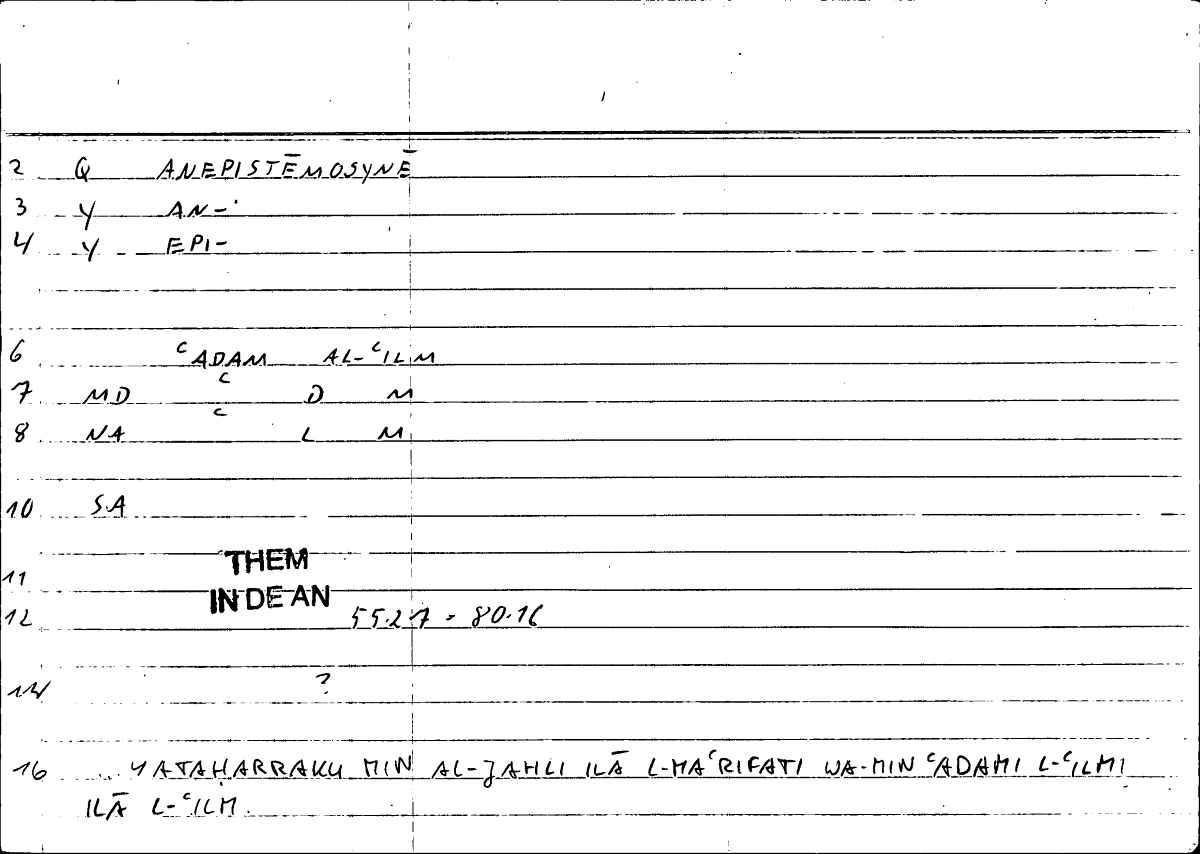 2 Q ANEPISTĒMOSYNĒ
3 Y AN-
4 Y EPI-
6 ᶜADAM AL-ᶜILM
7 MD ᶜ D M
8 NA ᶜ L M
10 SA
THEM
11
IN DE AN
12 55.27 = 80.16
14 ?
16 ... YATAḤARRAKU MIN AL-JAHLI ILĀ L-MAᶜRIFATI WA-MIN ᶜADAMI L-ᶜILMI
ILĀ L-ᶜILM.